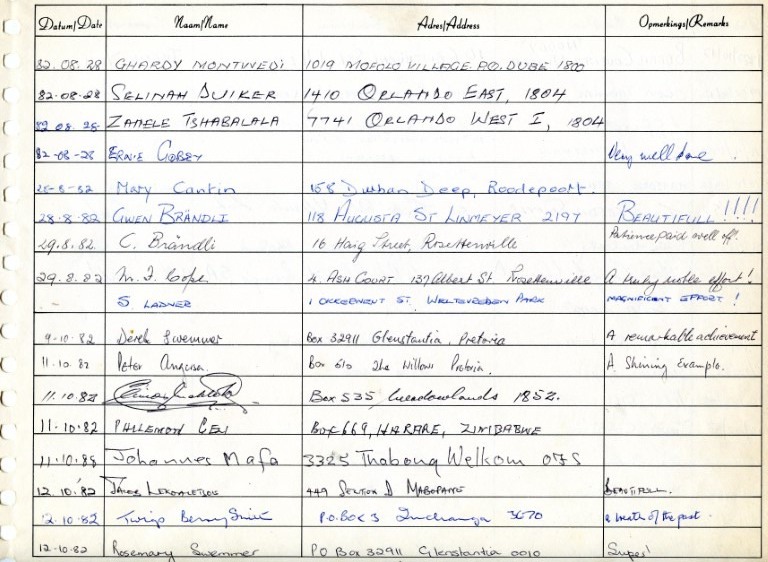 Datum/Date Naam/Name Adres/Address Opmerkings/Remarks
82.08.28 GHARDY MONTWEDI 1019 MOFOLO VILLAGE P.O. DUBE 1800
82-08-28 SELINAH DUIKER 1410 ORLANDO EAST, 1804
82.08.28 ZANELE TSHABALALA 7741 ORLANDO WEST I, 1804
82-08-28 ERNIE Very well done.
28-8-82 Mary Cantin 168 Durban Deep, Roodepoort.
28-8-82 GWEN BRÄNDLI 118 AUGUSTA ST LINMEYER 2197 BEAUTIFULL!!!!
29.8.82. C. Brändli 16 Haig Street, Rosettenville Patience paid well off.
29.8.82 M. J. Cope 4. ASH COURT 137 Albert St Rosettenville A truly noble effort!
S. LADNER ST. WELTEVREDEN PARK MAGNIFICENT EFFORT!
9-10-82 Derek Swemmer Box 32911 Glenstantia, Pretoria A remarkable achievement
11.10.82 Peter Box 610 The Willows Pretoria. A Shining Example.
11.10.82 Box 535 Meadowlands 1852.
11.10.82 PHILEMON Box 669, HARARE, ZIMBABWE
11.10.82 Johannes Mafa 3325 Thabong Welkom OFS
12.10.82 449 SECTION D MABOPANE BEAUTIFULL.
12.10.82 P.O. BOX 3 Inchanga 3670 a breath of the past.
12-10-82 Rosemary Swemmer P O Box 32911 Glenstantia 0010 Super!